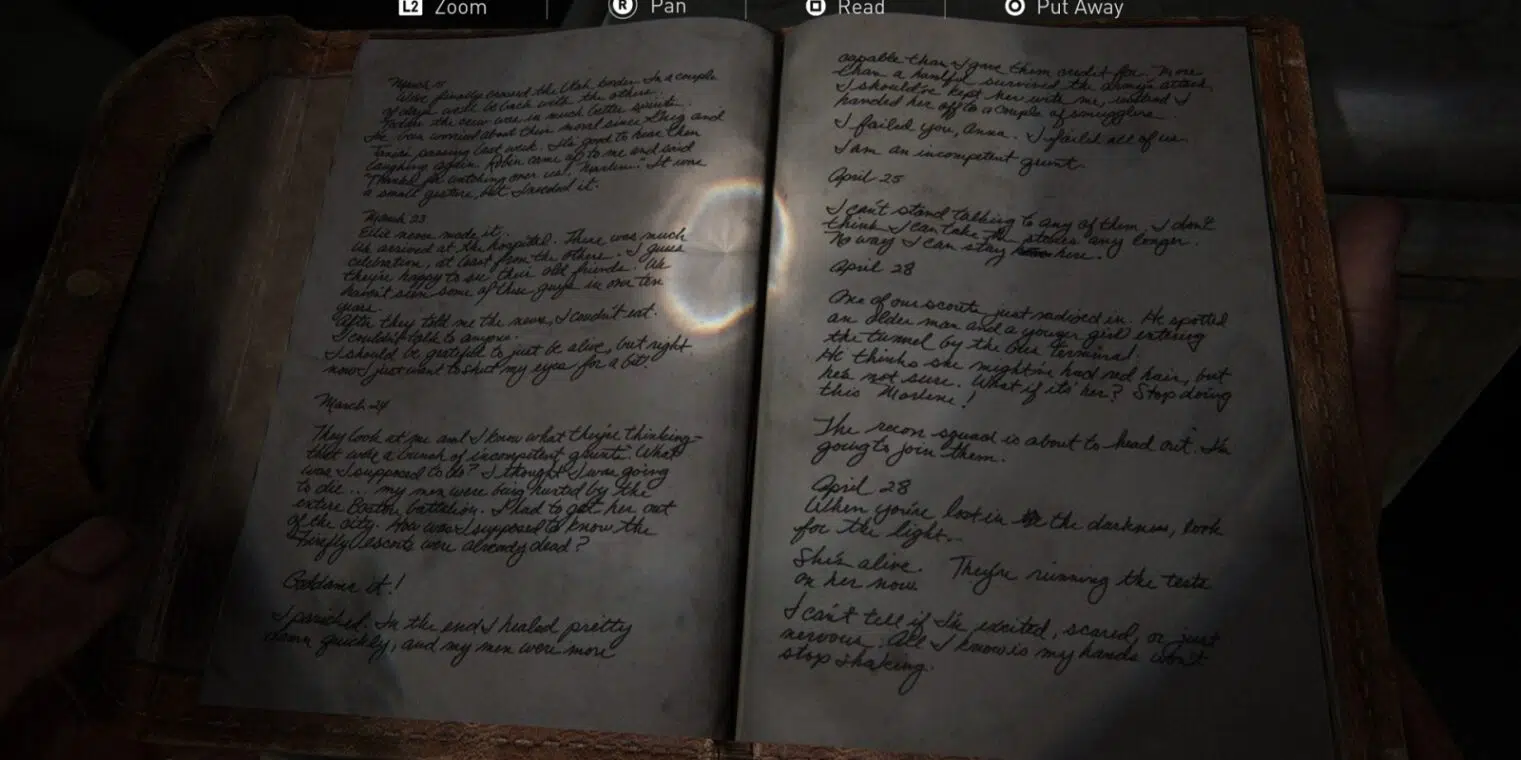 L2 Zoom
R Pan
Read
Put Away
March 15
We've finally crossed the Utah border. In a couple
of days we'll be back with the others.
Today the crew was in much better spirits.
I've been worried about their moral since Greg and
passing last week. It's good to hear them
laughing again. Robin came up to me and said
"Thanks for watching over us, Marlene." It was
a small gesture, but I needed it.
March 23
Ellie never made it.
We arrived at the hospital. There was much
celebration, at least from the others. I guess
they're happy to see their old friends. We
haven't seen some of these guys in over ten
years.
After they told me the news, I couldn't eat.
I couldn't talk to anyone.
I should be grateful to just be alive, but right
now I just want to shut my eyes for a bit.
March 24
They look at me and I know what they're thinking-
that we're a bunch of incompetent grunts. What
was I supposed to do? I thought I was going
to die... my men were being hunted by the
entire Boston battalion. I had to get her out
of the city. How was I supposed to know the
Firefly escorts were already dead?
Goddamn it!
I panicked. In the end I healed pretty
damn quickly, and my men were more
capable than I gave them credit for. More
than a handful survived the army's attack.
I should've kept her with me, instead I
handed her off to a couple of smugglers.
I failed you, Anna. I failed all of us.
I am an incompetent grunt.
April 25
I can't stand talking to any of them. I don't
think I can take the stares any longer.
No way I can stay here.
April 28
One of our scouts just radioed in. He spotted
an older man and a younger girl entering
the tunnel by the bus terminal.
He thinks she might've had red hair, but
he's not sure. What if it's her? Stop doing
this Marlene!
The recon squad is about to head out. I'm
going to join them.
April 28
When you're lost in the darkness, look
for the light...
She's alive. They're running the tests
on her now.
I can't tell if I'm excited, scared, or just
nervous. All I know is my hands won't
stop shaking.